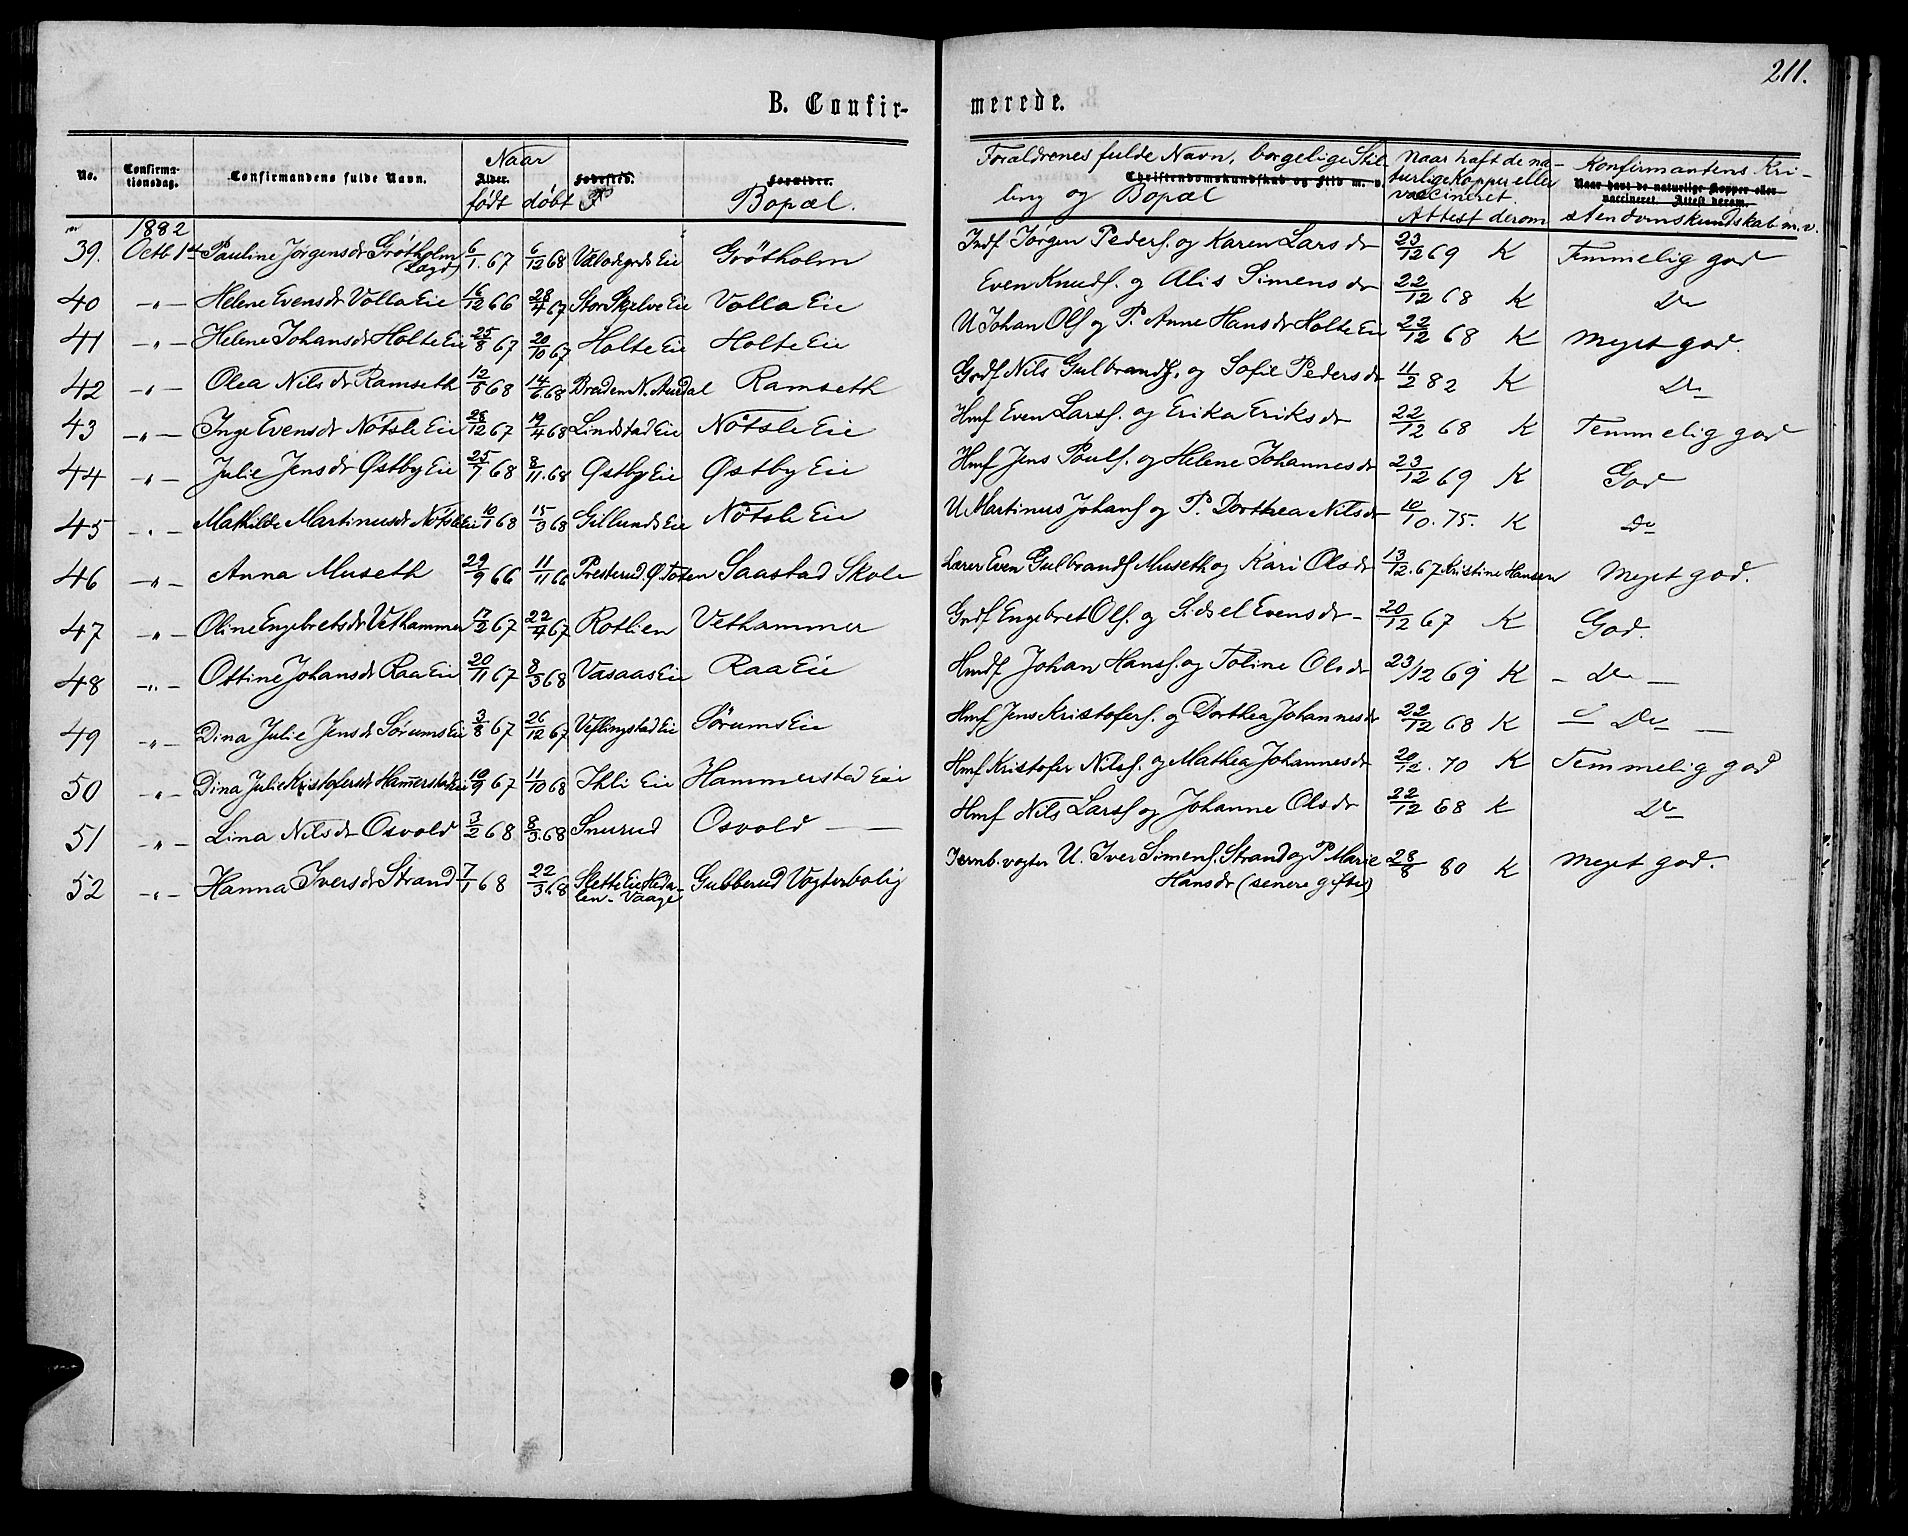 211.
B. Confir-
merede.
No.
Confirma-
tionsdag.
Confirmandens fulde Navn.
Naar
Alder.
født
døbt
Fødested.
Forældre.
Bopæl.
Forældrenes fulde Navn, borgelige Stil-
Christendomskundskab og Flid m. v.
ling og Bopæl
Naar haft de na-
turlige Kopper eller
vaccineret.
Attest derom
Konfirmantens Kri-
Naar havt de naturlige Kopper eller
vaccineret. Attest derom.
stendomskundskab m. v.
1882
39. Octb 1st Pauline Jørgensdr Grötholm 6/1. 67 6/12 68 Eie Grötholm Indf Jørgen Peders. og Karen Larsdr 23/12 69 K Temmelig god
(Lagd)
40 -"- Helene Evensdr Volla Eie 16/12 66 28/4 67 Stor Skjelve Eie Volla Eie Even Knuds. og Alis Simensdr 22/12 68 K Do
41 -"- Helene Johansdr Holte Eie 25/8 67 20/10 67 Holte Eie Holte Eie U Johan Ols og P. Anne Hansdr Holte Eie 22/12 68 K Meget god.
42 -"- Olea Nilsdr Ramseth 12/5 68 14/6 68 Braden N. Aurdal Ramseth Grdf Nils Gulbrands. og Sofie Pedersdr 11/2 82 K Do
43 -"- Inge Evensdr Nötsle Eie 28/12 67 19/4 68 Lindstad Eie Nötsle Eie Hmf Even Lars. og Erika Eriksdr 22/12 68 K Temmelig god
44 -"- Julie Jensdr Østby Eie 25/7 68 8/11. 68 Østby Eie Østby Eie Hmf Jens Pouls. og Helene Johannesdr 23/12 69 K God
45 -"- Mathilde Martinusdr Nötsle Eie 10/1 68 15/3 68 Gillunds Eie Nötsle Eie U Martinus Johans og P. Dorthea Nilsdr 10/10. 75. K Do
46 -"- Anna Museth 29/9 66 11/11 66 Presterud. Ø. Toten Saastad Skole Lærer Even Gulbrands Museth og Kari Olsdr 13/12. 67 Kristine Hansen Meget god.
47 -"- Oline Engebretsdr Vethammer 17/2 67 22/4 67 Rotlien Vethammer Grdf Engebret Ols. og Sidsel Evensdr 20/12 67 K God.
48 -"- Ottine Johansdr Raa Eie 20/11 67 8/3 68 Vasaas Eie Raa Eie Hmdf Johan Hans. og Toline Olsdr 23/12 69 K - Do -
49 -"- Dina Julie Jensdr Sørums Eie 3/8 67 26/12 67 Veflingstad Eie Sørums Eie Hmf Jens Kristofers. og Dorthea Johannesdr 22/12 68 K - Do -
50 -"- Dina Julie Kristofersdr Hammerstad Eie 10/9 67 11/10 68 Ihli Eie Hammerstad Eie Hmf Kristofer Nils. og Mathea Johannesdr 20/12. 70 K Temmelig god
51 -"- Lina Nilsdr Osvold 3/2 68 8/3. 68 Snurud Osvold Hmf Nils Lars og Johanne Olsdr 22/12 68 K Do
52 -"- Hanna Iversdr Strand 7/1 68 22/3 68 Slette Eie Heda- Gubberud Vogterbolig Jernb. vogter U. Iver Simens. Strand og P Marie 28/8 80 K Meget god.
len - Vaage Hansdr (senere gifte)